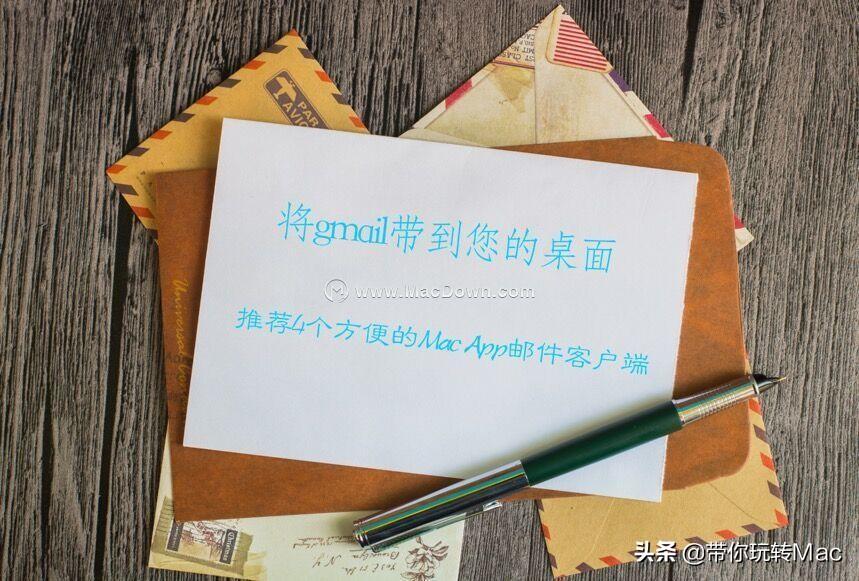 PAR
AVION
将gmail带到您的桌面
www.MacDown.com
推荐4个方便的Mac App邮件客户端
头条 @带你玩转Mac